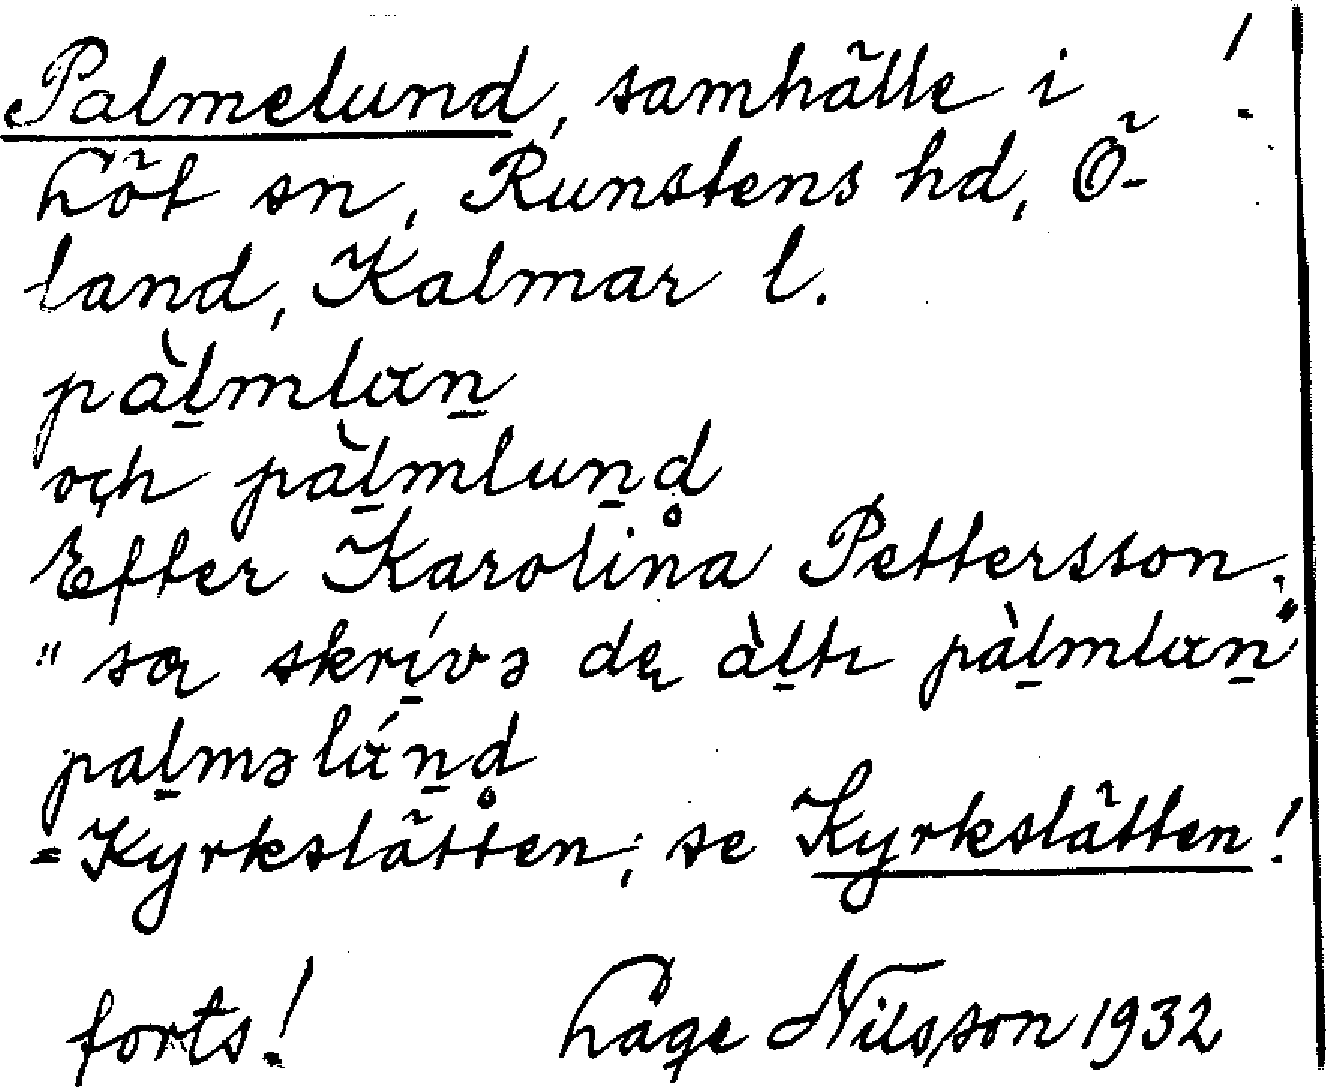 Palmelund, samhälle i !
Löt sn, Runstens hd, Ö-
land, Kalmar l.
pàl̠mlαn̠
och pàl̠mlun̠d̥
Efter Karolina Pettersson.
"sα skrí̠və dę àl̠tı pàl̠mlαn̠"
pal̠məlάn̠d̥
=Kyrkslätten; se Kyrkslätten!
forts! Låge Nilsson 1932